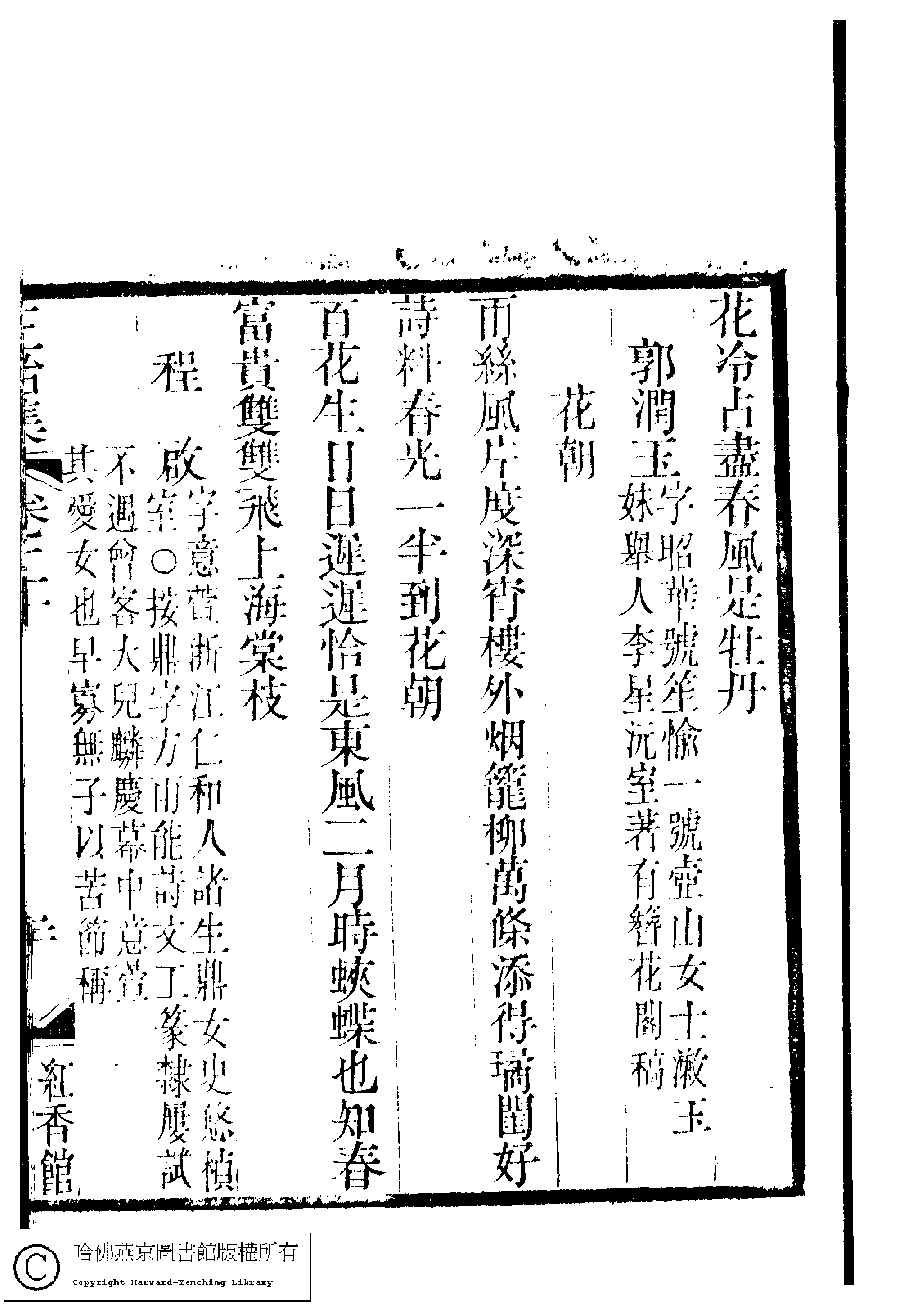 花冷占盡春風是牡丹
郭潤玉
字昭華號笙愉一號壺山女士漱玉
妹舉人李星沅室著有簪花閣稿
花朝
雨絲風片度深宵樓外烟籠柳萬條添得璚閨好
詩料春光一半到花朝
百花生日日遲遲恰是東風二月時蛺蝶也知春
富貴雙雙飛上海棠枝
程　啟
字意萱浙江仁和人諸生鼎女史悠楨
室○按鼎字方雨能詩文工篆隸屢試
不遇曾客大兒麟慶幕中意萱
其愛女也早寡無子以苦節稱
正始集
卷二十
紅香館
哈佛燕京圖書館版權所有
Copyright Harvard-Yenching Library